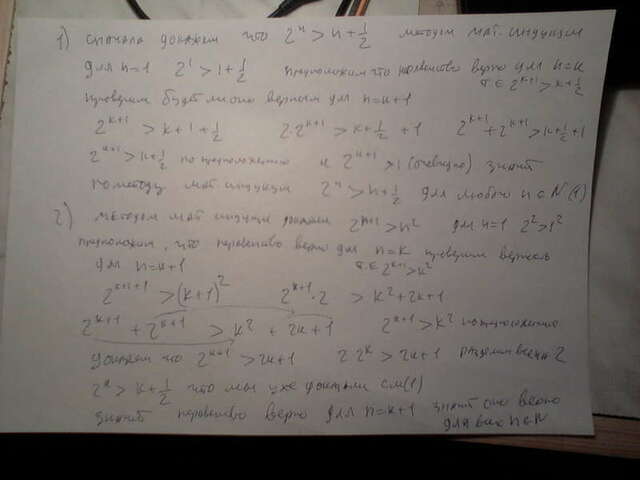 1) сначала докажем что 2^n > n + 1/2 методом мат. индукции
для n=1 2^1 > 1 + 1/2 предположим что неравенство верно для n=k
т.е 2^{k+1} > k + 1/2
проверим будет ли оно верным для n=k+1
2^{k+1} > k+1+1/2 2·2^{k+1} > k+1/2+1 2^{k+1}+2^{k+1} > k+1/2+1
2^{k+1} > k+1/2 по предположению и 2^{k+1} > 1 (очевидно) значит
по методу мат. индукции 2^n > n+1/2 для любого n ∈ N (1)
2) методом мат индукции докажем 2^{n+1} > n^2 для n=1 2^2 > 1^2
предположим, что неравенство верно для n=k проверим
т.е 2^{k+1} > k^2
для n=k+1
2^{k+1+1} > (k+1)^2 2^{k+1}·2 > k^2+2k+1
2^{k+1} + 2^{k+1} > k^2 + 2k+1 2^{k+1} > k^2 по предположению
докажем что 2^{k+1} > 2k+1 2·2^k > 2k+1 разделим все на 2
2^k > k+1/2 что мы уже доказали см(1)
значит неравенство верно для n=k+1 значит оно верно
для всех n∈N